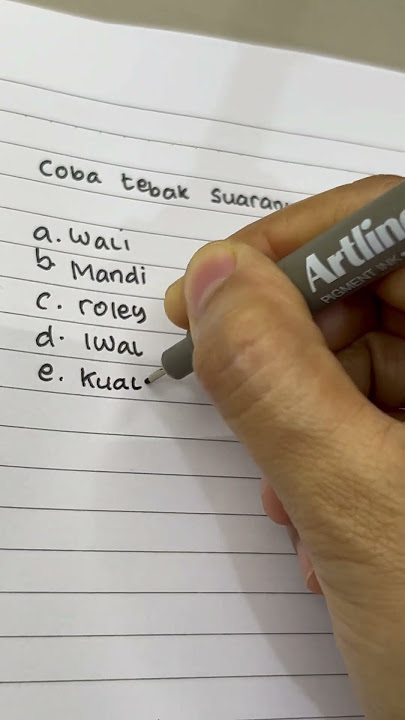 Coba tebak suaran
a. Wali
b. Mandi
c. roley
d. Iwal
e. Kual
Artline
PIGMENT INK